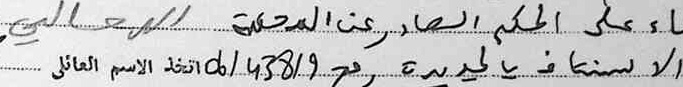 اء على الحكم الصادر عن المحكمة
الاستئناف بالجديدة رقم 06/438/9 اتخذ الاسم العائلي